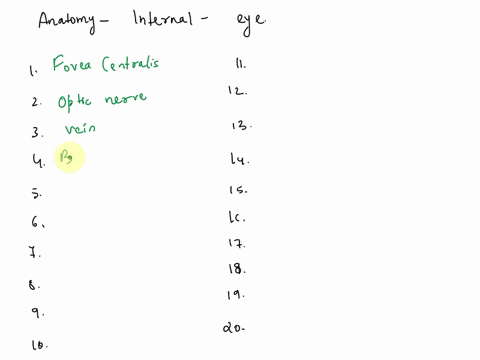 Anatomy - Internal - eye.
1. Fovea Centralis
2. Optic nerve
3. Vein
4.
5.
6.
7.
8.
9.
10.
11.
12.
13.
14.
15.
16.
17.
18.
19.
20.